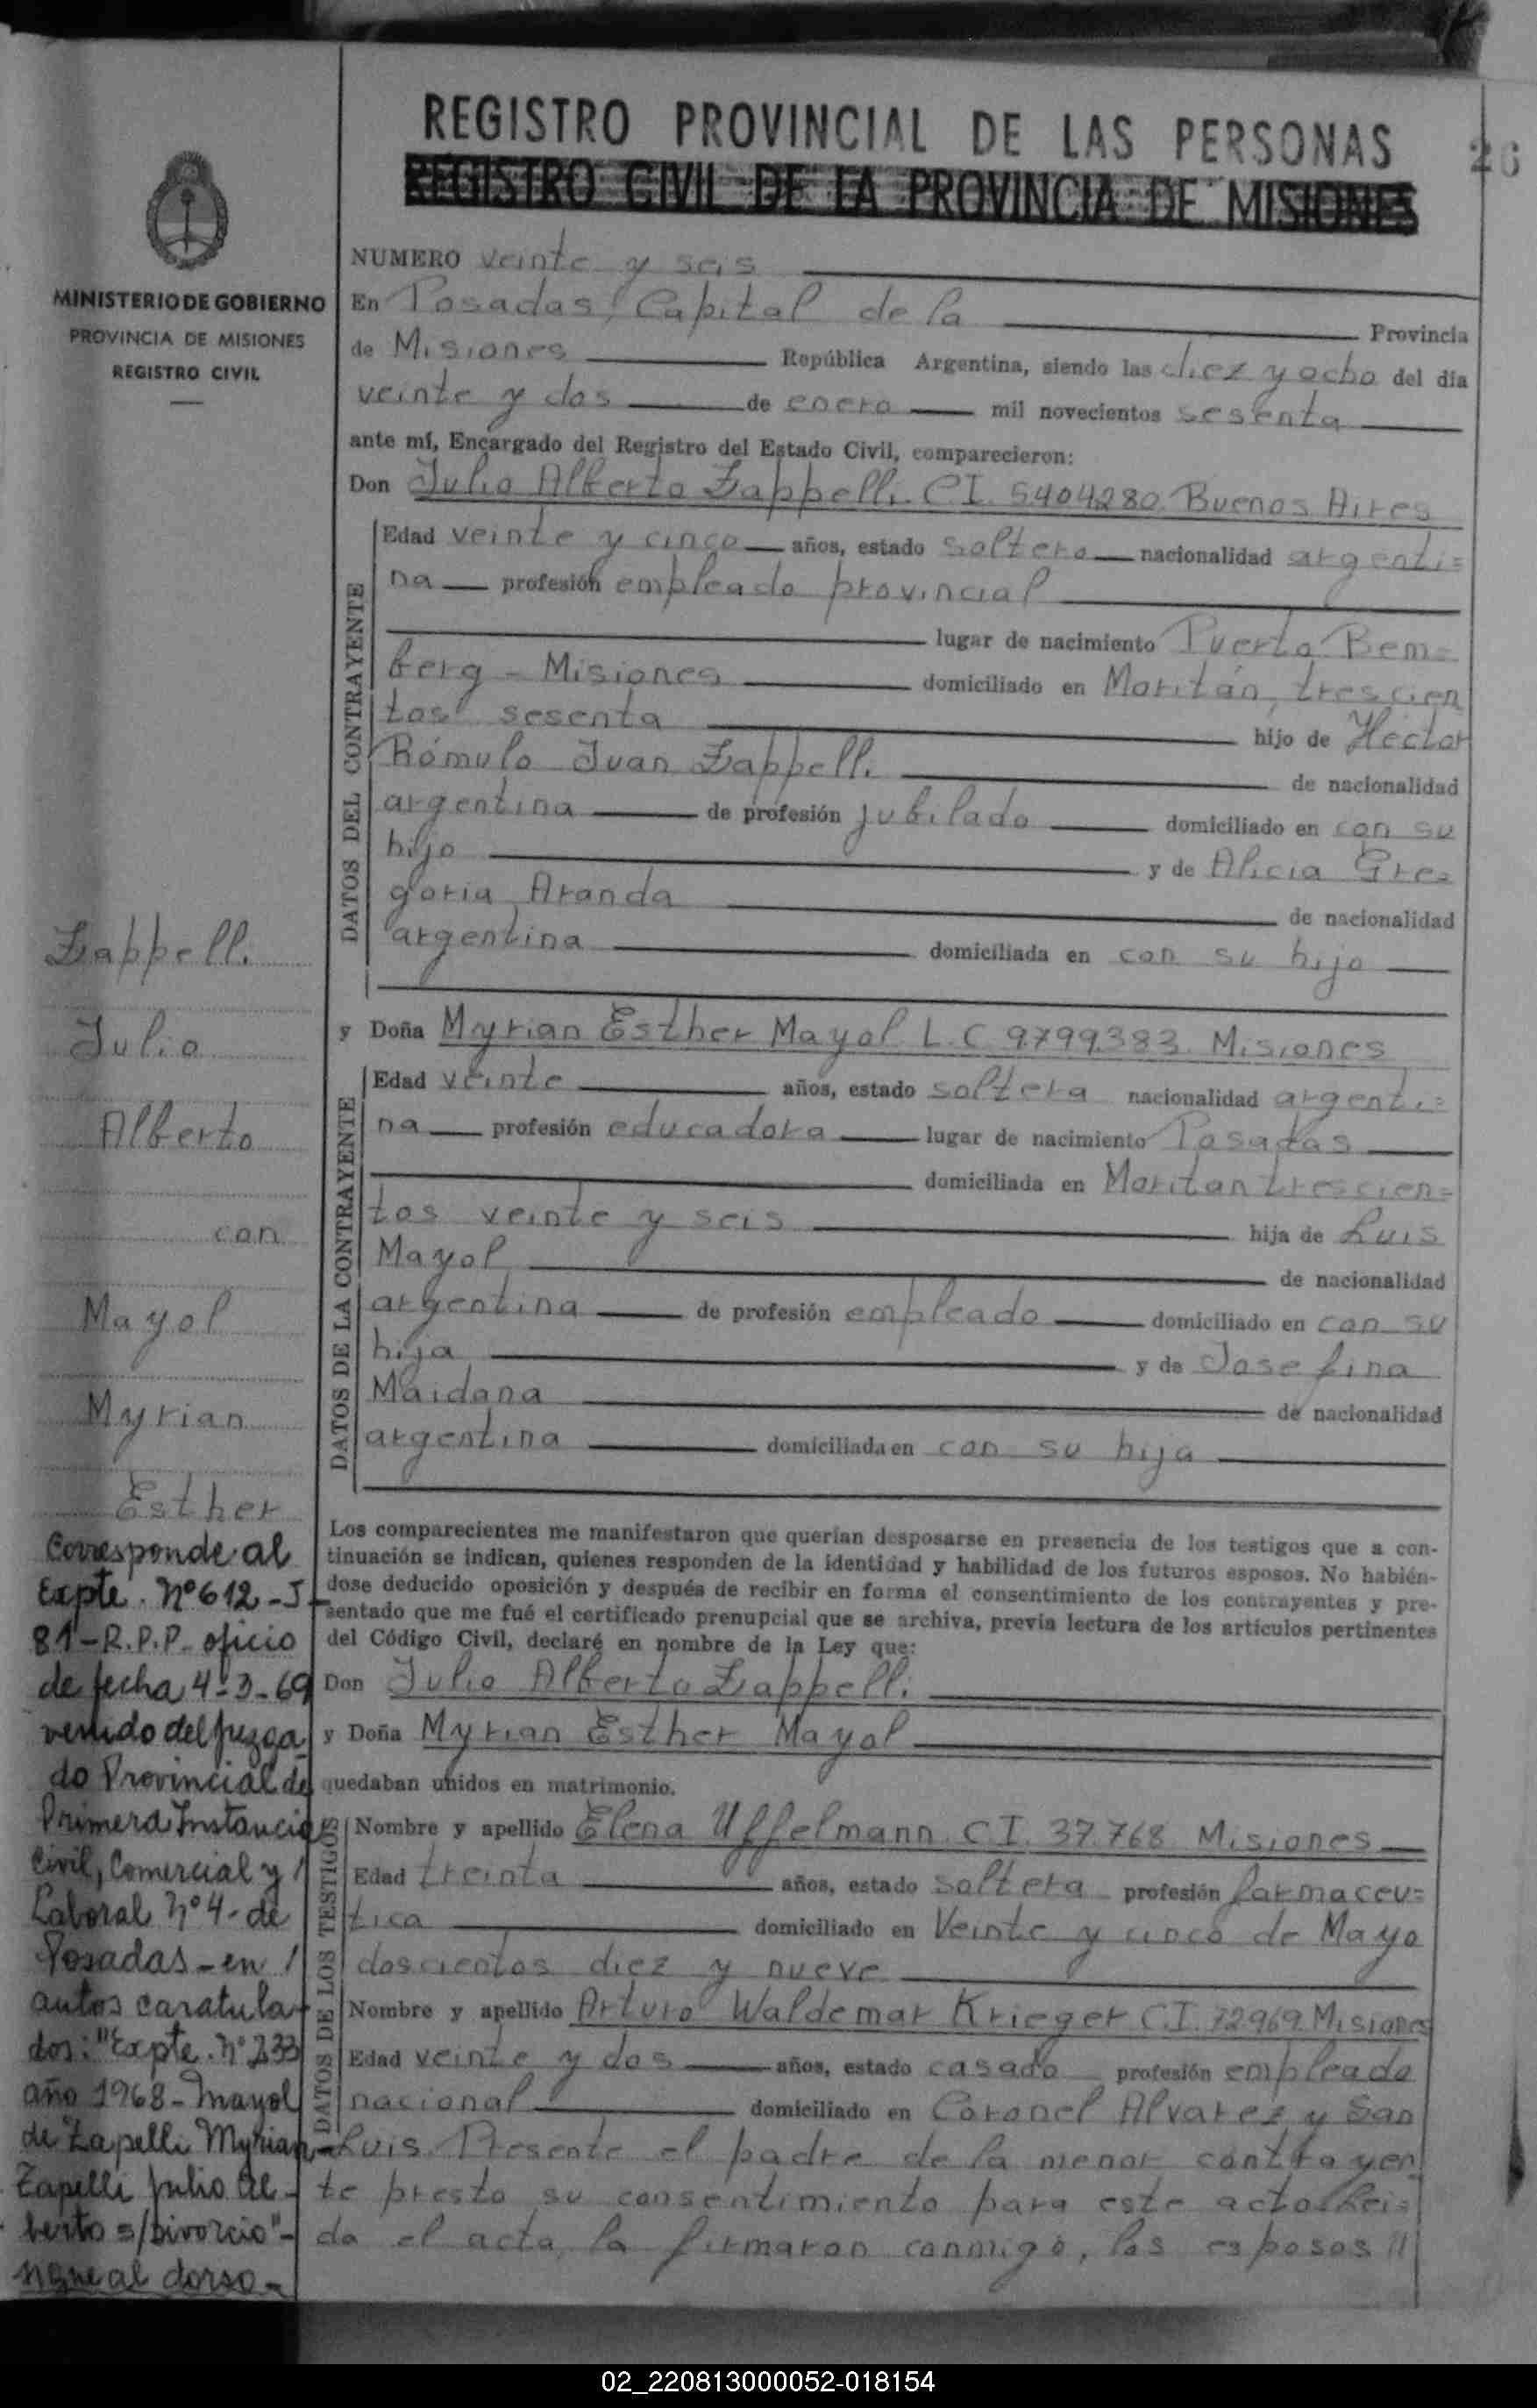 REGISTRO PROVINCIAL DE LAS PERSONAS
26
REGISTRO CIVIL DE LA PROVINCIA DE MISIONES
MINISTERIO DE GOBIERNO
PROVINCIA DE MISIONES
REGISTRO CIVIL
NUMERO veinte y seis
En Posadas, Capital de la Provincia
de Misiones República Argentina, siendo las diez y ocho del día
veinte y dos de enero mil novecientos sesenta
ante mí, Encargado del Registro del Estado Civil, comparecieron:
Don Julio Alberto Zappelli. C.I. 5404280. Buenos Aires
DATOS DEL CONTRAYENTE
Edad veinte y cinco años, estado soltero nacionalidad argenti=
na profesión empleado provincial
lugar de nacimiento Puerto Bem=
berg - Misiones domiciliado en Moritán, trescien
tos sesenta hijo de Héctor
Rómulo Juan Zappelli de nacionalidad
argentina de profesión jubilado domiciliado en con su
hijo y de Alicia Gre=
goria Aranda de nacionalidad
argentina domiciliada en con su hijo
y Doña Myrian Esther Mayol L.C 9.799.383. Misiones
DATOS DE LA CONTRAYENTE
Edad veinte años, estado soltera nacionalidad argenti=
na profesión educadora lugar de nacimiento Posadas
domiciliada en Moritan trescien=
tos veinte y seis hija de Luis
Mayol de nacionalidad
argentina de profesión empleado domiciliado en con su
hija y de Josefina
Maidana de nacionalidad
argentina domiciliada en con su hija
Los comparecientes me manifestaron que querían desposarse en presencia de los testigos que a con-
tinuación se indican, quienes responden de la identidad y habilidad de los futuros esposos. No habién-
dose deducido oposición y después de recibir en forma el consentimiento de los contrayentes y pre-
sentado que me fué el certificado prenupcial que se archiva, previa lectura de los artículos pertinentes
del Código Civil, declaré en nombre de la Ley que:
Don Julio Alberto Zappelli
y Doña Myrian Esther Mayol
quedaban unidos en matrimonio.
DATOS DE LOS TESTIGOS
Nombre y apellido Elena Uffelmann. C.I. 37.768. Misiones
Edad treinta años, estado soltera profesión farmaceu=
tica domiciliado en Veinte y cinco de Mayo
doscientos diez y nueve
Nombre y apellido Arturo Waldemar Krieger C.I. 72969. Misiones
Edad veinte y dos años, estado casado profesión empleado
nacional domiciliado en Coronel Alvarez y San
Luis. Presente el padre de la menor contrayen
te presto su consentimiento para este acto. Lei=
da el acta, la firmaron conmigo, los esposos //
Zappelli
Julio
Alberto
con
Mayol
Myrian
Esther
Corresponde al
Expte. Nº 612-J-
81-R.P.P. oficio
de fecha 4-3-69
venido del juzga
do Provincial de
Primera Instancia
Civil, Comercial y /
Laboral Nº 4- de
Posadas-en /
autos caratula-
dos: "Expte. Nº 233
año 1968-Mayol
de Zapelli Myrian-
Zapelli Julio Al-
berto s/Divorcio"-
sigue al dorso-
02_220813000052-018154